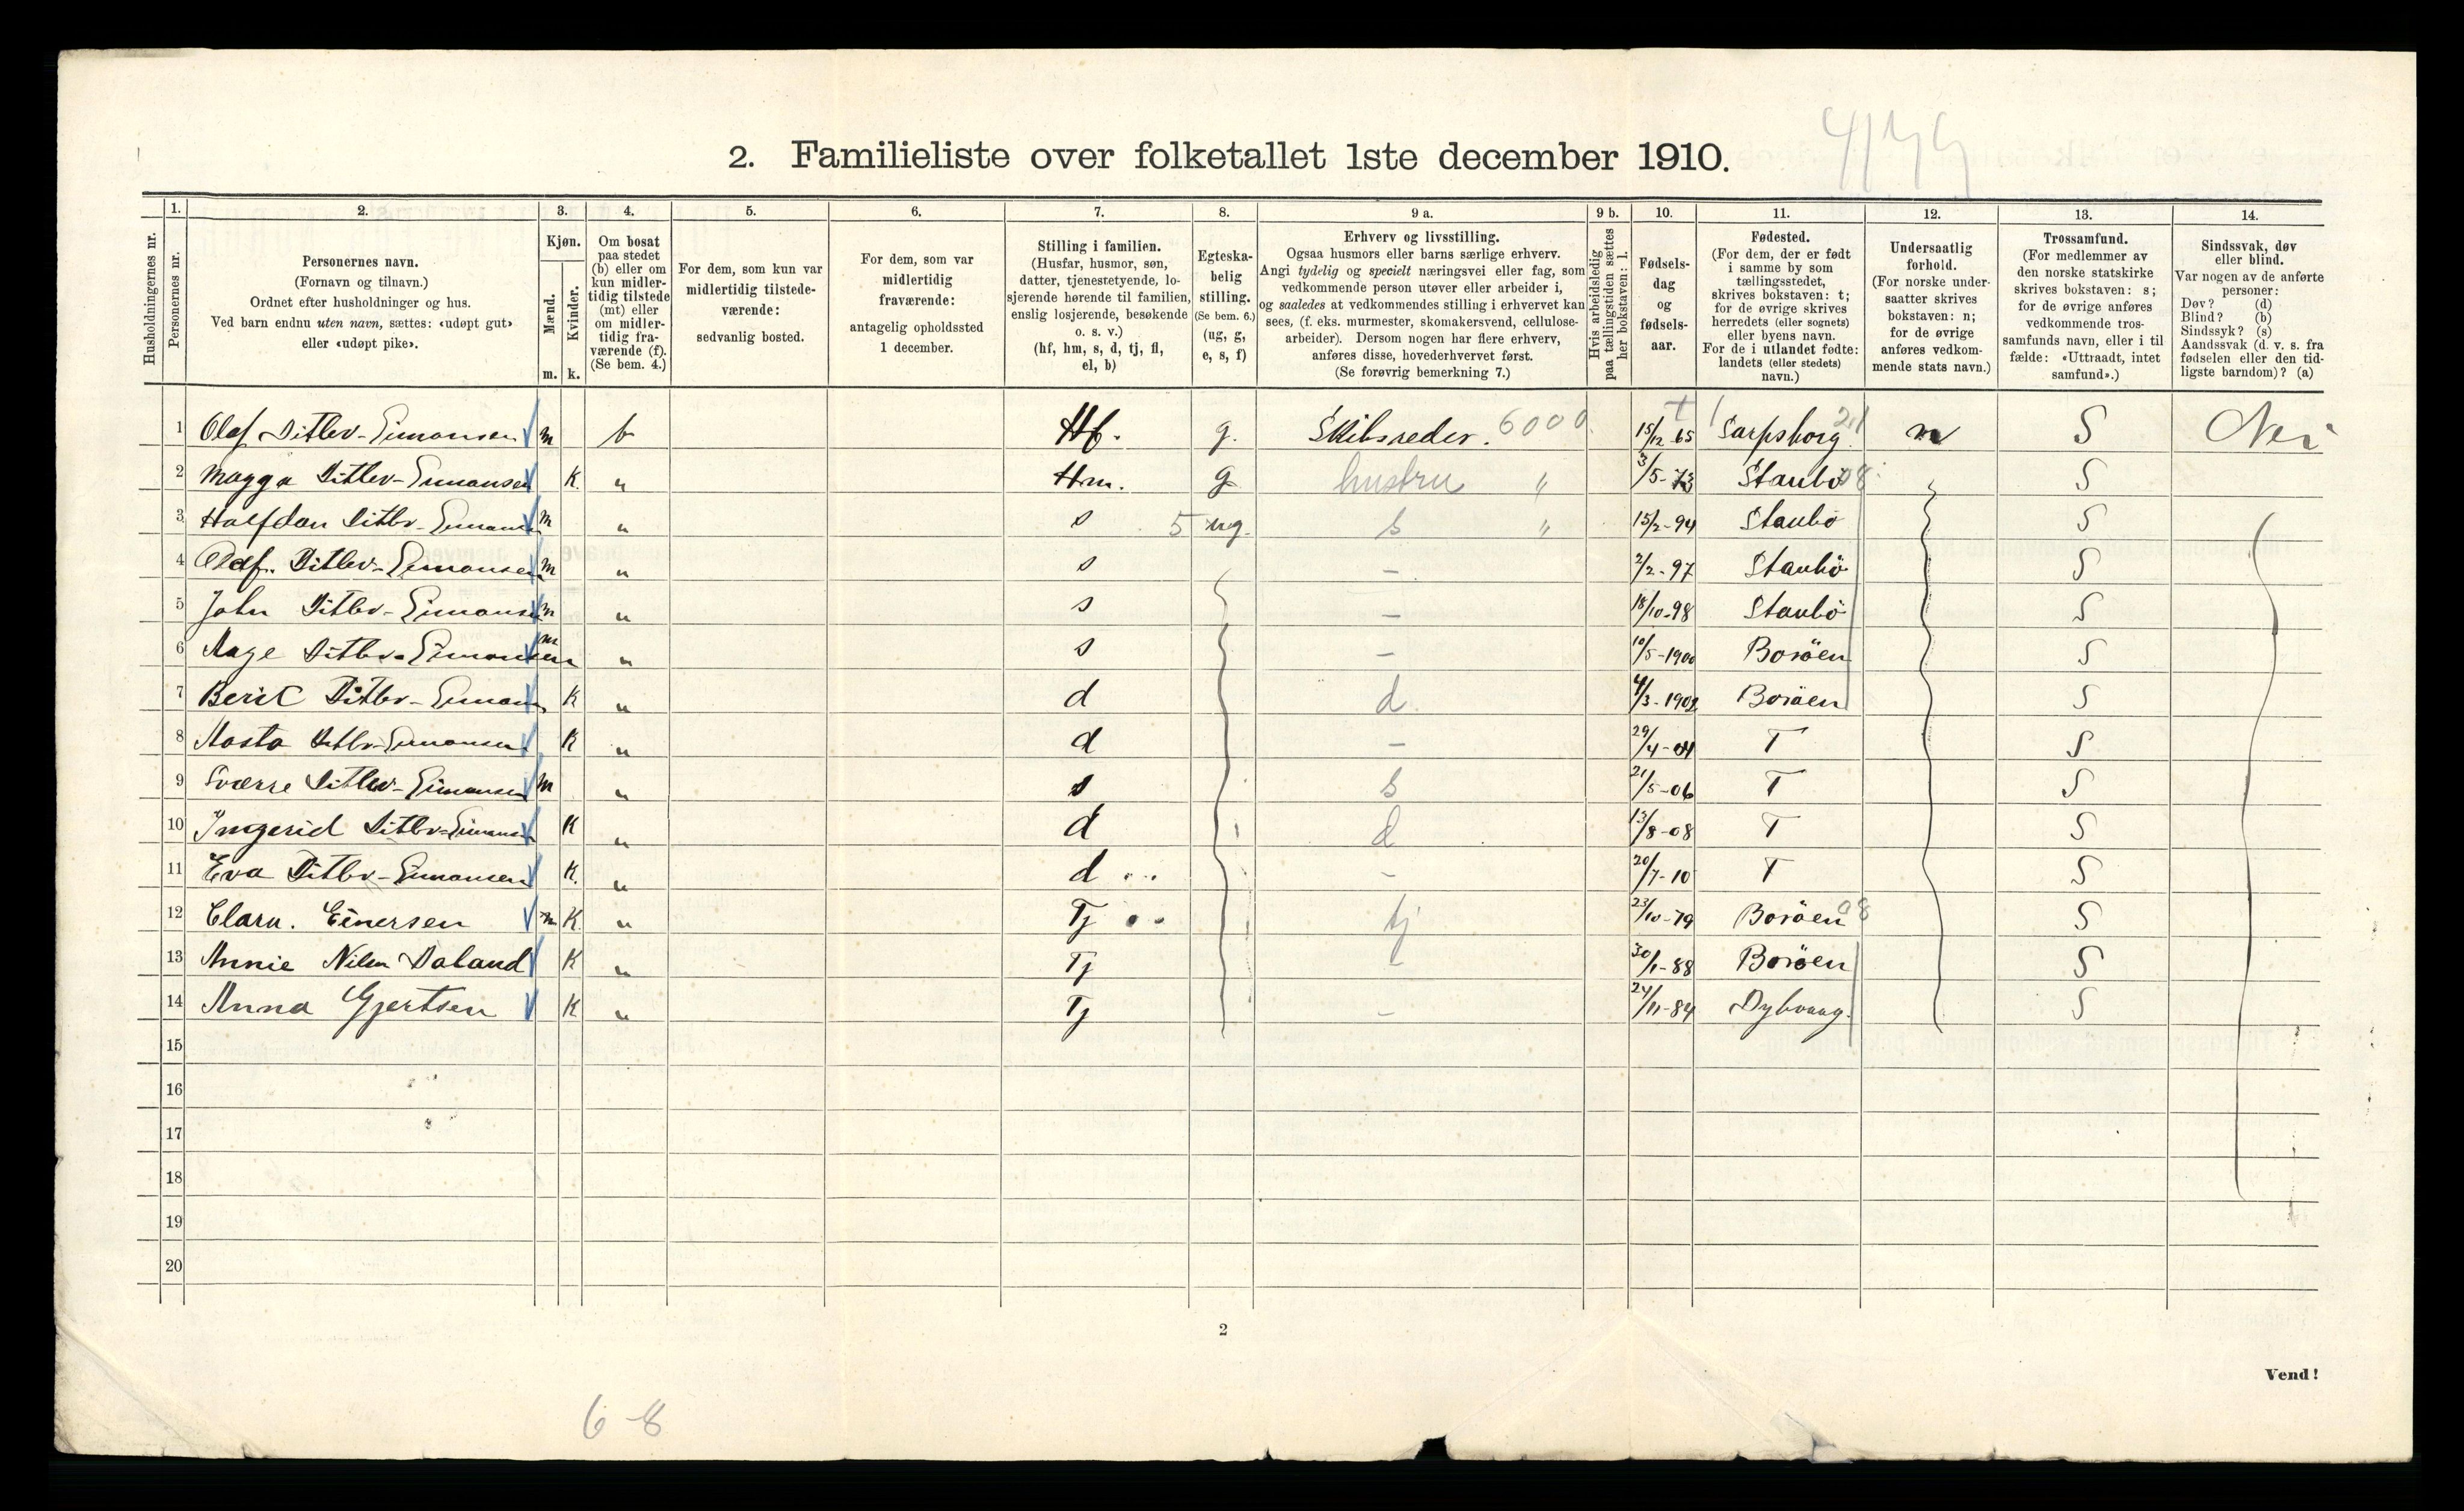 4/44
2. Familieliste over folketallet 1ste december 1910.
Husholdningernes nr.
1.
Personernes nr.
2.
Personernes navn.
(Fornavn og tilnavn.)
Ordnet efter husholdninger og hus.
Ved barn endnu uten navn, sættes: «udøpt gut»
eller «udøpt pike».
3.
Kjøn.
Mænd.
Kvinder.
m. k.
4.
Om bosat
paa stedet
(b) eller om
kun midler-
tidig tilstede
(mt) eller
om midler-
tidig fra-
værende (f).
(Se bem. 4.)
5.
For dem, som kun var
midlertidig tilstede-
værende:
sedvanlig bosted.
6.
For dem, som var
midlertidig
fraværende:
antagelig opholdssted
1 december.
7.
Stilling i familien.
(Husfar, husmor, søn,
datter, tjenestetyende, lo-
sjerende hørende til familien,
enslig losjerende, besøkende
o. s. v.)
(hf, hm, s, d, tj, fl,
el, b)
8.
Egteska-
belig
stilling.
(Se bem. 6.)
(ug, g,
e, s, f)
9 a.
Erhverv og livsstilling.
Ogsaa husmors eller barns særlige erhverv.
Angi tydelig og specielt næringsvei eller fag, som
vedkommende person utøver eller arbeider i,
og saaledes at vedkommendes stilling i erhvervet kan
sees, (f. eks. murmester, skomakersvend, cellulose-
arbeider). Dersom nogen har flere erhverv,
anføres disse, hovederhvervet først.
(Se forøvrig bemerkning 7.)
9 b.
Hvis arbeidsledig
paa tællingstiden sættes
her bokstaven: l.
10.
Fødsels-
dag
og
fødsels-
aar.
11.
Fødested.
(For dem, der er født
i samme by som
tællingsstedet,
skrives bokstaven: t;
for de øvrige skrives
herredets (eller sognets)
eller byens navn.
For de i utlandet fødte:
landets (eller stedets)
navn.)
12.
Undersaatlig
forhold.
(For norske under-
saatter skrives
bokstaven: n;
for de øvrige
anføres vedkom-
mende stats navn.)
13.
Trossamfund.
(For medlemmer av
den norske statskirke
skrives bokstaven: s;
for de øvrige anføres
vedkommende tros-
samfunds navn, eller i til
fælde: «Uttraadt, intet
samfund».)
14.
Sindssvak, døv
eller blind.
Var nogen av de anførte
personer:
Døv? (d)
Blind? (b)
Sindssyk? (s)
Aandssvak (d. v. s. fra
fødselen eller den tid-
ligste barndom)? (a)
1 Olaf Ditlev-Simonsen m b Hf. g. Skibsreder. 6000 15/12 65 Sarpsborg n S Nei
2 Magga Ditlev-Simonsen K. " Hm. g hustru " 3/5-73 Staubö S
3 Halfdan Ditlev-Simonsen m " s 5 ug. s " 15/2-94 Staubö S
4 Olaf. Ditlev-Simonsen m " s - 2/2-97 Staubö S
5 John Ditlev-Simonsen m " s - 18/10-98 Staubö S
6 Aage Ditlev-Simonsen m " s - 10/5-1900 Boröen S
7 Berit Ditlev-Simonsen K " d d. 4/3-1902 Boröen S
8 Aasta Ditlev-Simonsen K " d - 29/4-04 T S
9 Sværre Ditlev-Simonsen m " s s 21/5-06 T S
10 Ingerid Ditlev-Simonsen K " d d 13/8-08 T S
11 Eva Ditlev-Simonsen K. " d - 20/7-10 T S
12 Clara. Einersen K. " Tj tj 23/10-79 Boröen 08 S
13 Annie Nilsen Daland K " Tj - 30/1-88 Boröen S
14 Anna Gjertsen K " Tj - 24/11-84 Dybvaag. S
15
16
17
18
19
20
2
Vend!
6-8